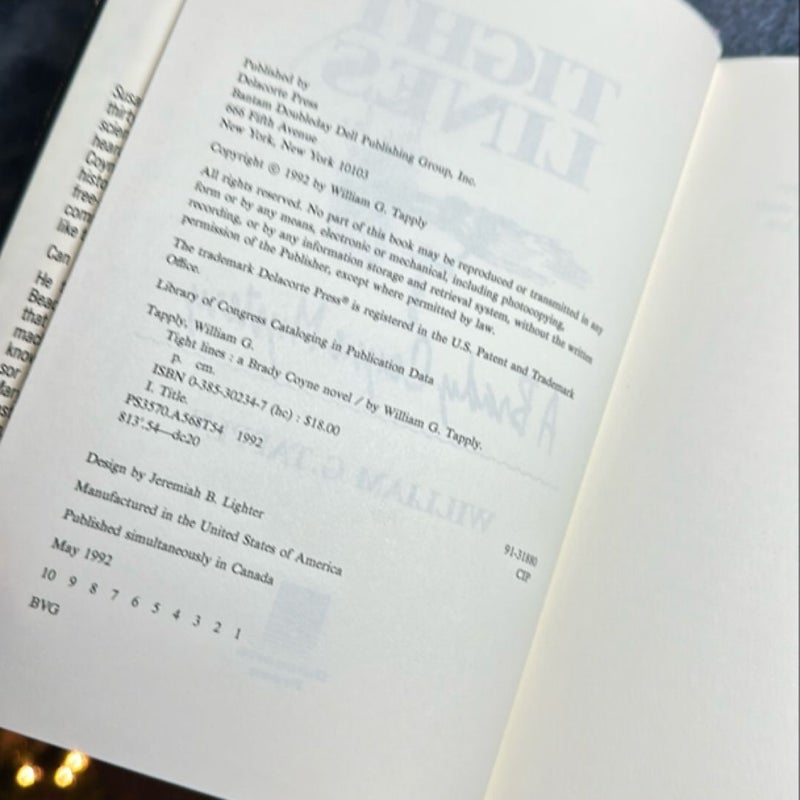 Published by
Delacorte Press
Bantam Doubleday Dell Publishing Group, Inc.
666 Fifth Avenue
New York, New York 10103
Copyright © 1992 by William G. Tapply
All rights reserved. No part of this book may be reproduced or transmitted in any
form or by any means, electronic or mechanical, including photocopying,
recording, or by any information storage and retrieval system, without the written
permission of the Publisher, except where permitted by law.
The trademark Delacorte Press® is registered in the U.S. Patent and Trademark
Office.
Library of Congress Cataloging in Publication Data
Tapply, William G.
Tight lines : a Brady Coyne novel / by William G. Tapply.
p. cm.
ISBN 0-385-30234-7 (hc) : $18.00
I. Title.
PS3570.A568T54 1992
813'.54—dc20
91-31880
CIP
Design by Jeremiah B. Lighter
Manufactured in the United States of America
Published simultaneously in Canada
May 1992
10 9 8 7 6 5 4 3 2 1
BVG
TIGHT
LINES
A Brady Coyne Mystery
WILLIAM G. TAPPLY
Can
He
that